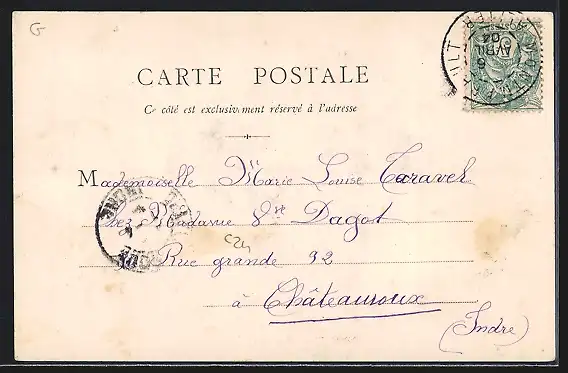 CARTE POSTALE
Ce côté est exclusivement réservé à l'adresse
Mademoiselle Marie Louise Taravel
chez Madame Vve Dagot
Rue grande 32
à Châteauroux
(Indre)
AVRIL
04